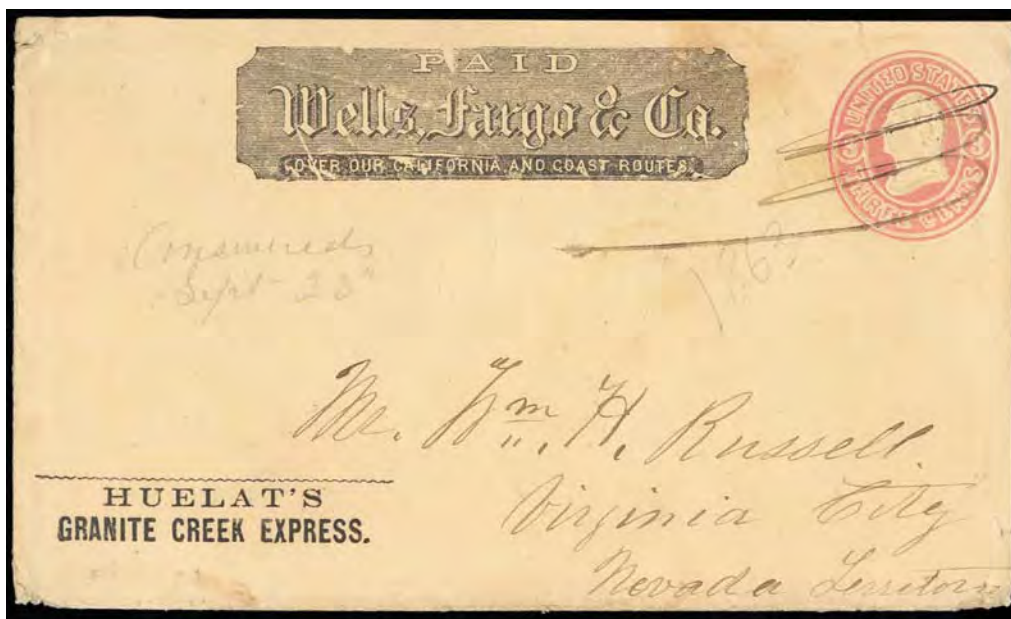 PAID
Wells, Fargo & Co.
OVER OUR CALIFORNIA AND COAST ROUTES.
UNITED STATES
THREE CENTS
Answered
Sept 23
1863
Mr. Wm. H. Russell.
Virginia City
Nevada Territory
HUELAT'S
GRANITE CREEK EXPRESS.